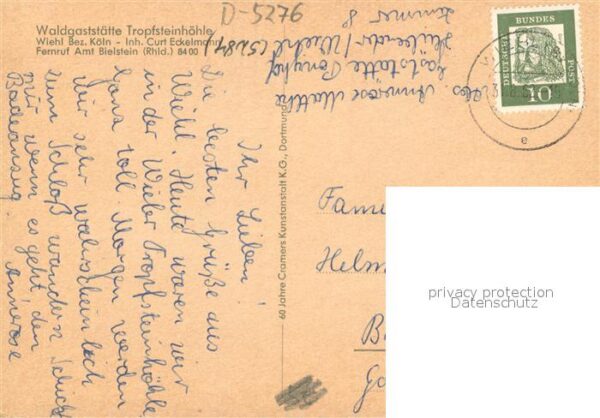 Waldgaststätte Tropfsteinhöhle
Wiehl Bez. Köln - Inh. Curt Eckelmann
Fernruf Amt Bielstein (Rhld.) 8400
D-5276
Ihr Lieben!
Die besten Grüße aus
Wiehl. Heute waren wir
in der Wieler Tropfsteinhöhle
ganz toll. Morgen werden
wir sehr wahrscheinlich
zum Schloß wandern. Schickt
mir wenn es geht den
Badeanzug.
Annerose
Abs. Annerose
Gaststätte Ponyhof
/Wiehl
Zimmer 8
60 Jahre Cramers Kunstanstalt K.G., Dortmund
DEUTSCHE
BUNDES
POST
10
e
Fam
Helm
B
privacy protection
Datenschutz